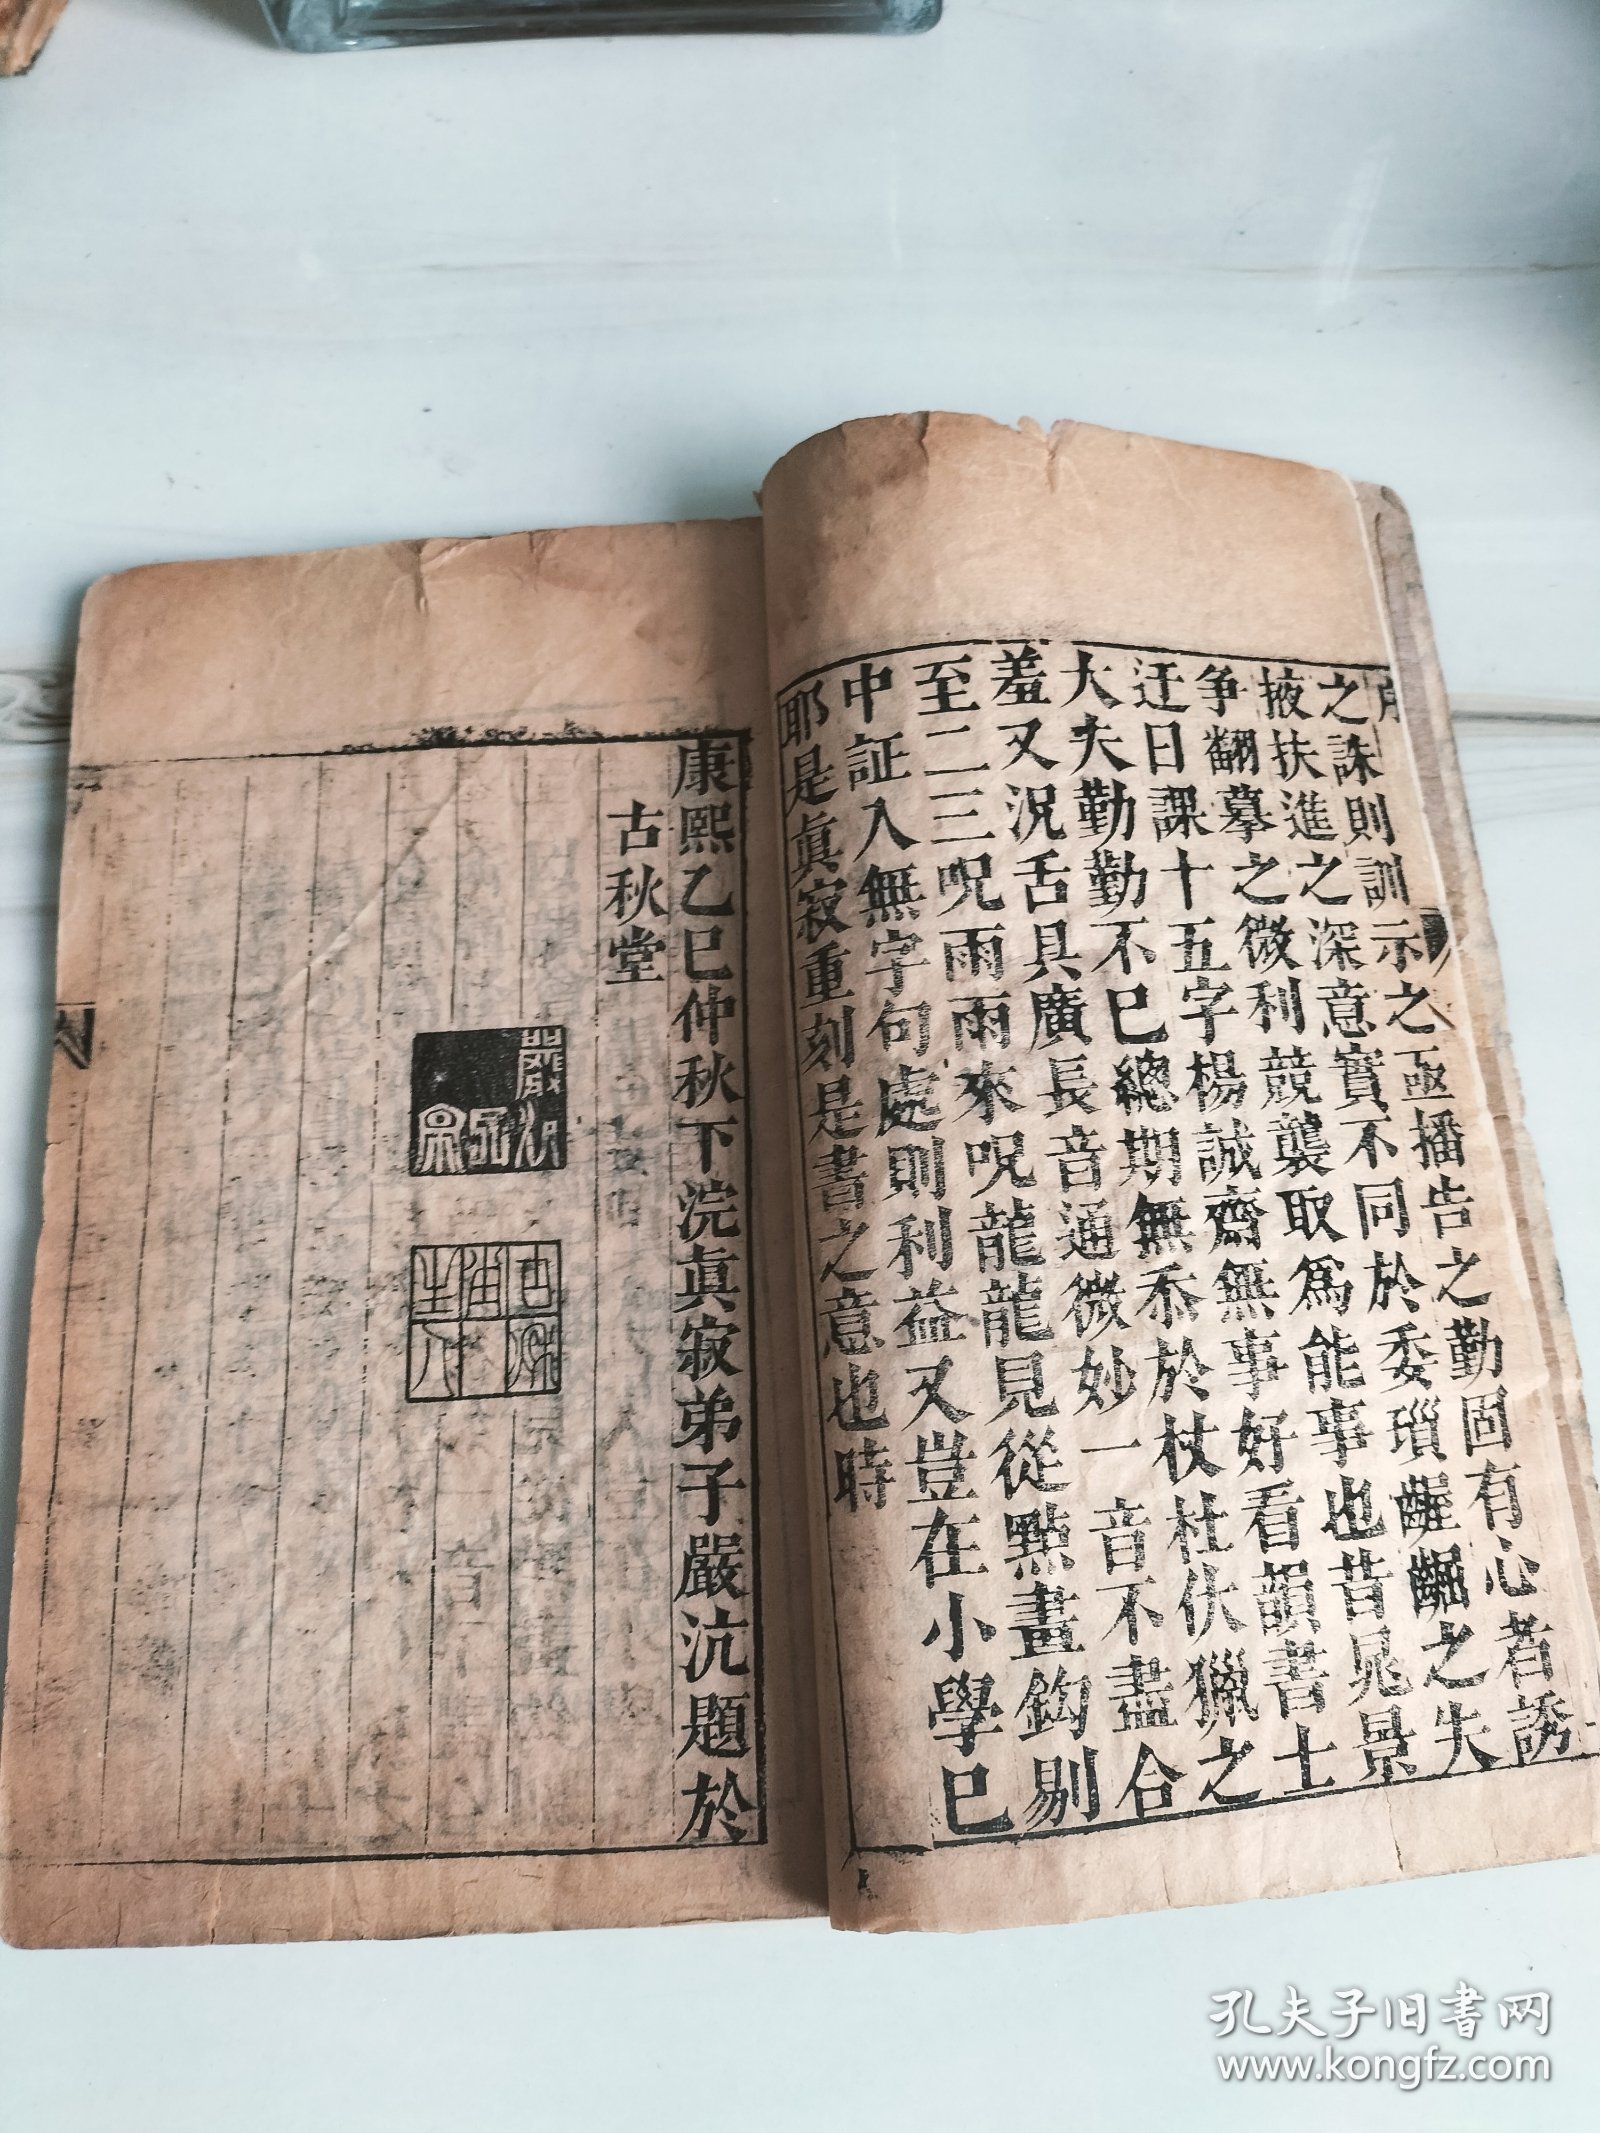 之誅則訓示之亟播告之勤固有心者誘
掖扶進之深意實不同於委瑣齷齪之失
争翻摹之微利競襲取爲能事也昔晁景
迂日課十五字楊誠齋無事好看韻書士
大夫勤勤不已總期無忝於杖杜伏獵之
羞又況舌具廣長音通微妙一音不盡合
至二三呪雨雨來呪龍龍見從點畫鈎剔
中証入無字句處則利益又豈在小學已
耶是眞寂重刻是書之意也時
康熙乙巳仲秋下浣眞寂弟子嚴沆題於
古秋堂
孔夫子旧书网
www.kongfz.com